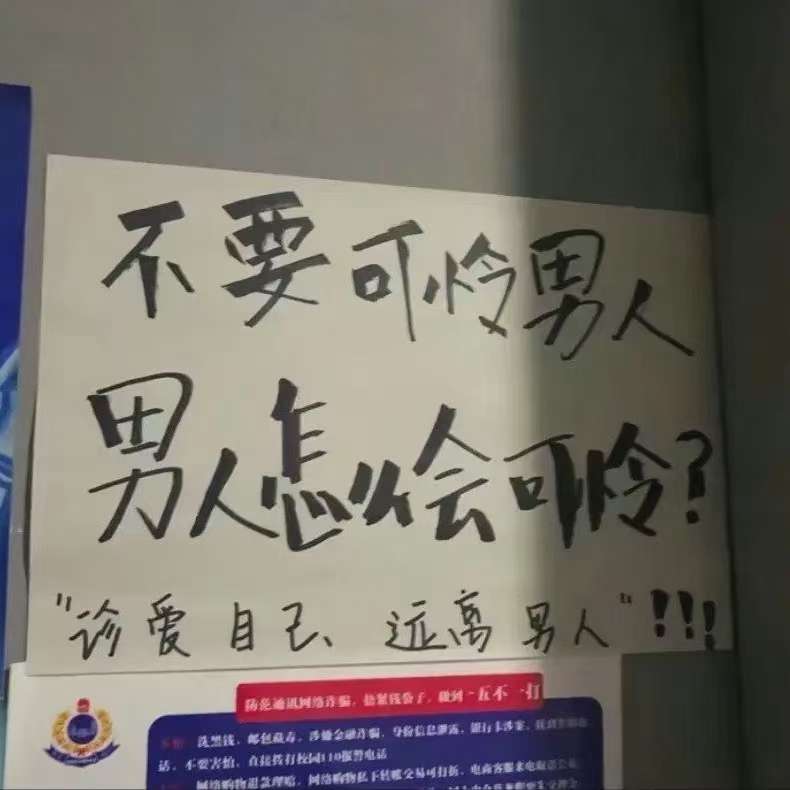 不要可怜男人
男人怎么会可怜?
"诊爱自己、远离男人"!!!
防范通讯网络诈骗，捂紧钱袋子，做到一五不一打
洗黑钱、邮包藏毒、涉嫌金融诈骗、身份信息泄露、银行卡涉案、
话，不要害怕，直接拨打校园110报警电话
网络购物退款理赔、网络购物私下转账交易可打折、电商客服来电